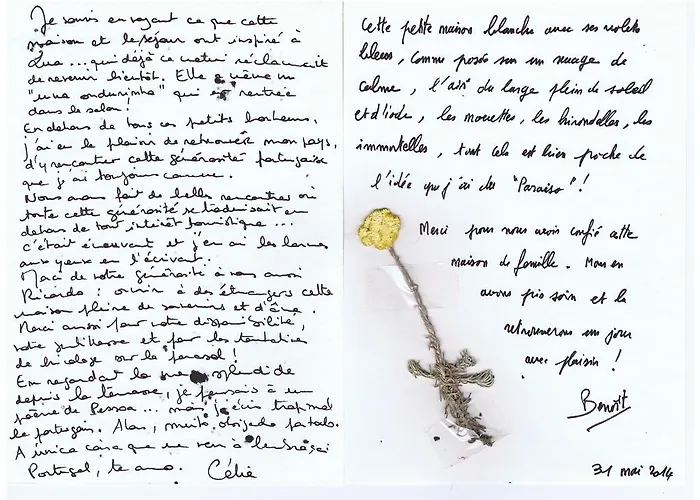 Je souris en voyant ce que cette
maison et le séjour ont inspiré à
Lua ... qui déjà ce matin réclamait
de revenir bientôt. Elle a même vu
"uma andorinha" qui est rentrée
dans le salon !
En dehors de tous ces petits bonheurs,
j'ai eu le plaisir de retrouver mon pays,
d'y rencontrer cette générosité portugaise
que j'ai toujours connue.
Nous avons fait de belles rencontres où
toute cette générosité se traduisait en
dehors de tout intérêt touristique ...
c'était émouvant et j'en ai les larmes
aux yeux en l'écrivant.
Merci de votre générosité à vous aussi
Ricardo : ouvrir à des étrangers cette
maison pleine de souvenirs et d'âme.
Merci aussi pour votre disponibilité,
votre gentillesse et pour les tentatives
de bricolage sur le parasol !
En regardant la vue splendide
depuis la terrasse, je pensais à un
poème de Pessoa ... mais j'écris trop mal
le portugais. Alors, muito obrigada por tudo.
A única coisa que me vem à
Portugal, te amo. Célia
Cette petite maison blanche avec ses volets
bleus, comme posée sur un nuage de
calme, l'air du large plein de soleil
et d'iode, les mouettes, les hirondelles, les
immortelles, tout cela est bien proche de
l'idée que j'ai du "Paraiso" !
Merci pour nous avoir confié cette
maison de famille. Nous en
avons pris soin et la
retrouverons un jour
avec plaisir !
Benoît
31 mai 2014